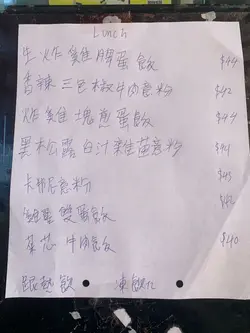 Lunch
生炸雞脾蛋飯 $44
香辣三色椒牛肉意粉 $42
炸雞塊煎蛋飯 $42
黑松露白汁雞茸意粉 $44
卡邦尼意粉 $45
雙蛋飯
菜芯牛肉飯 $40
跟熱飲 凍飲+2